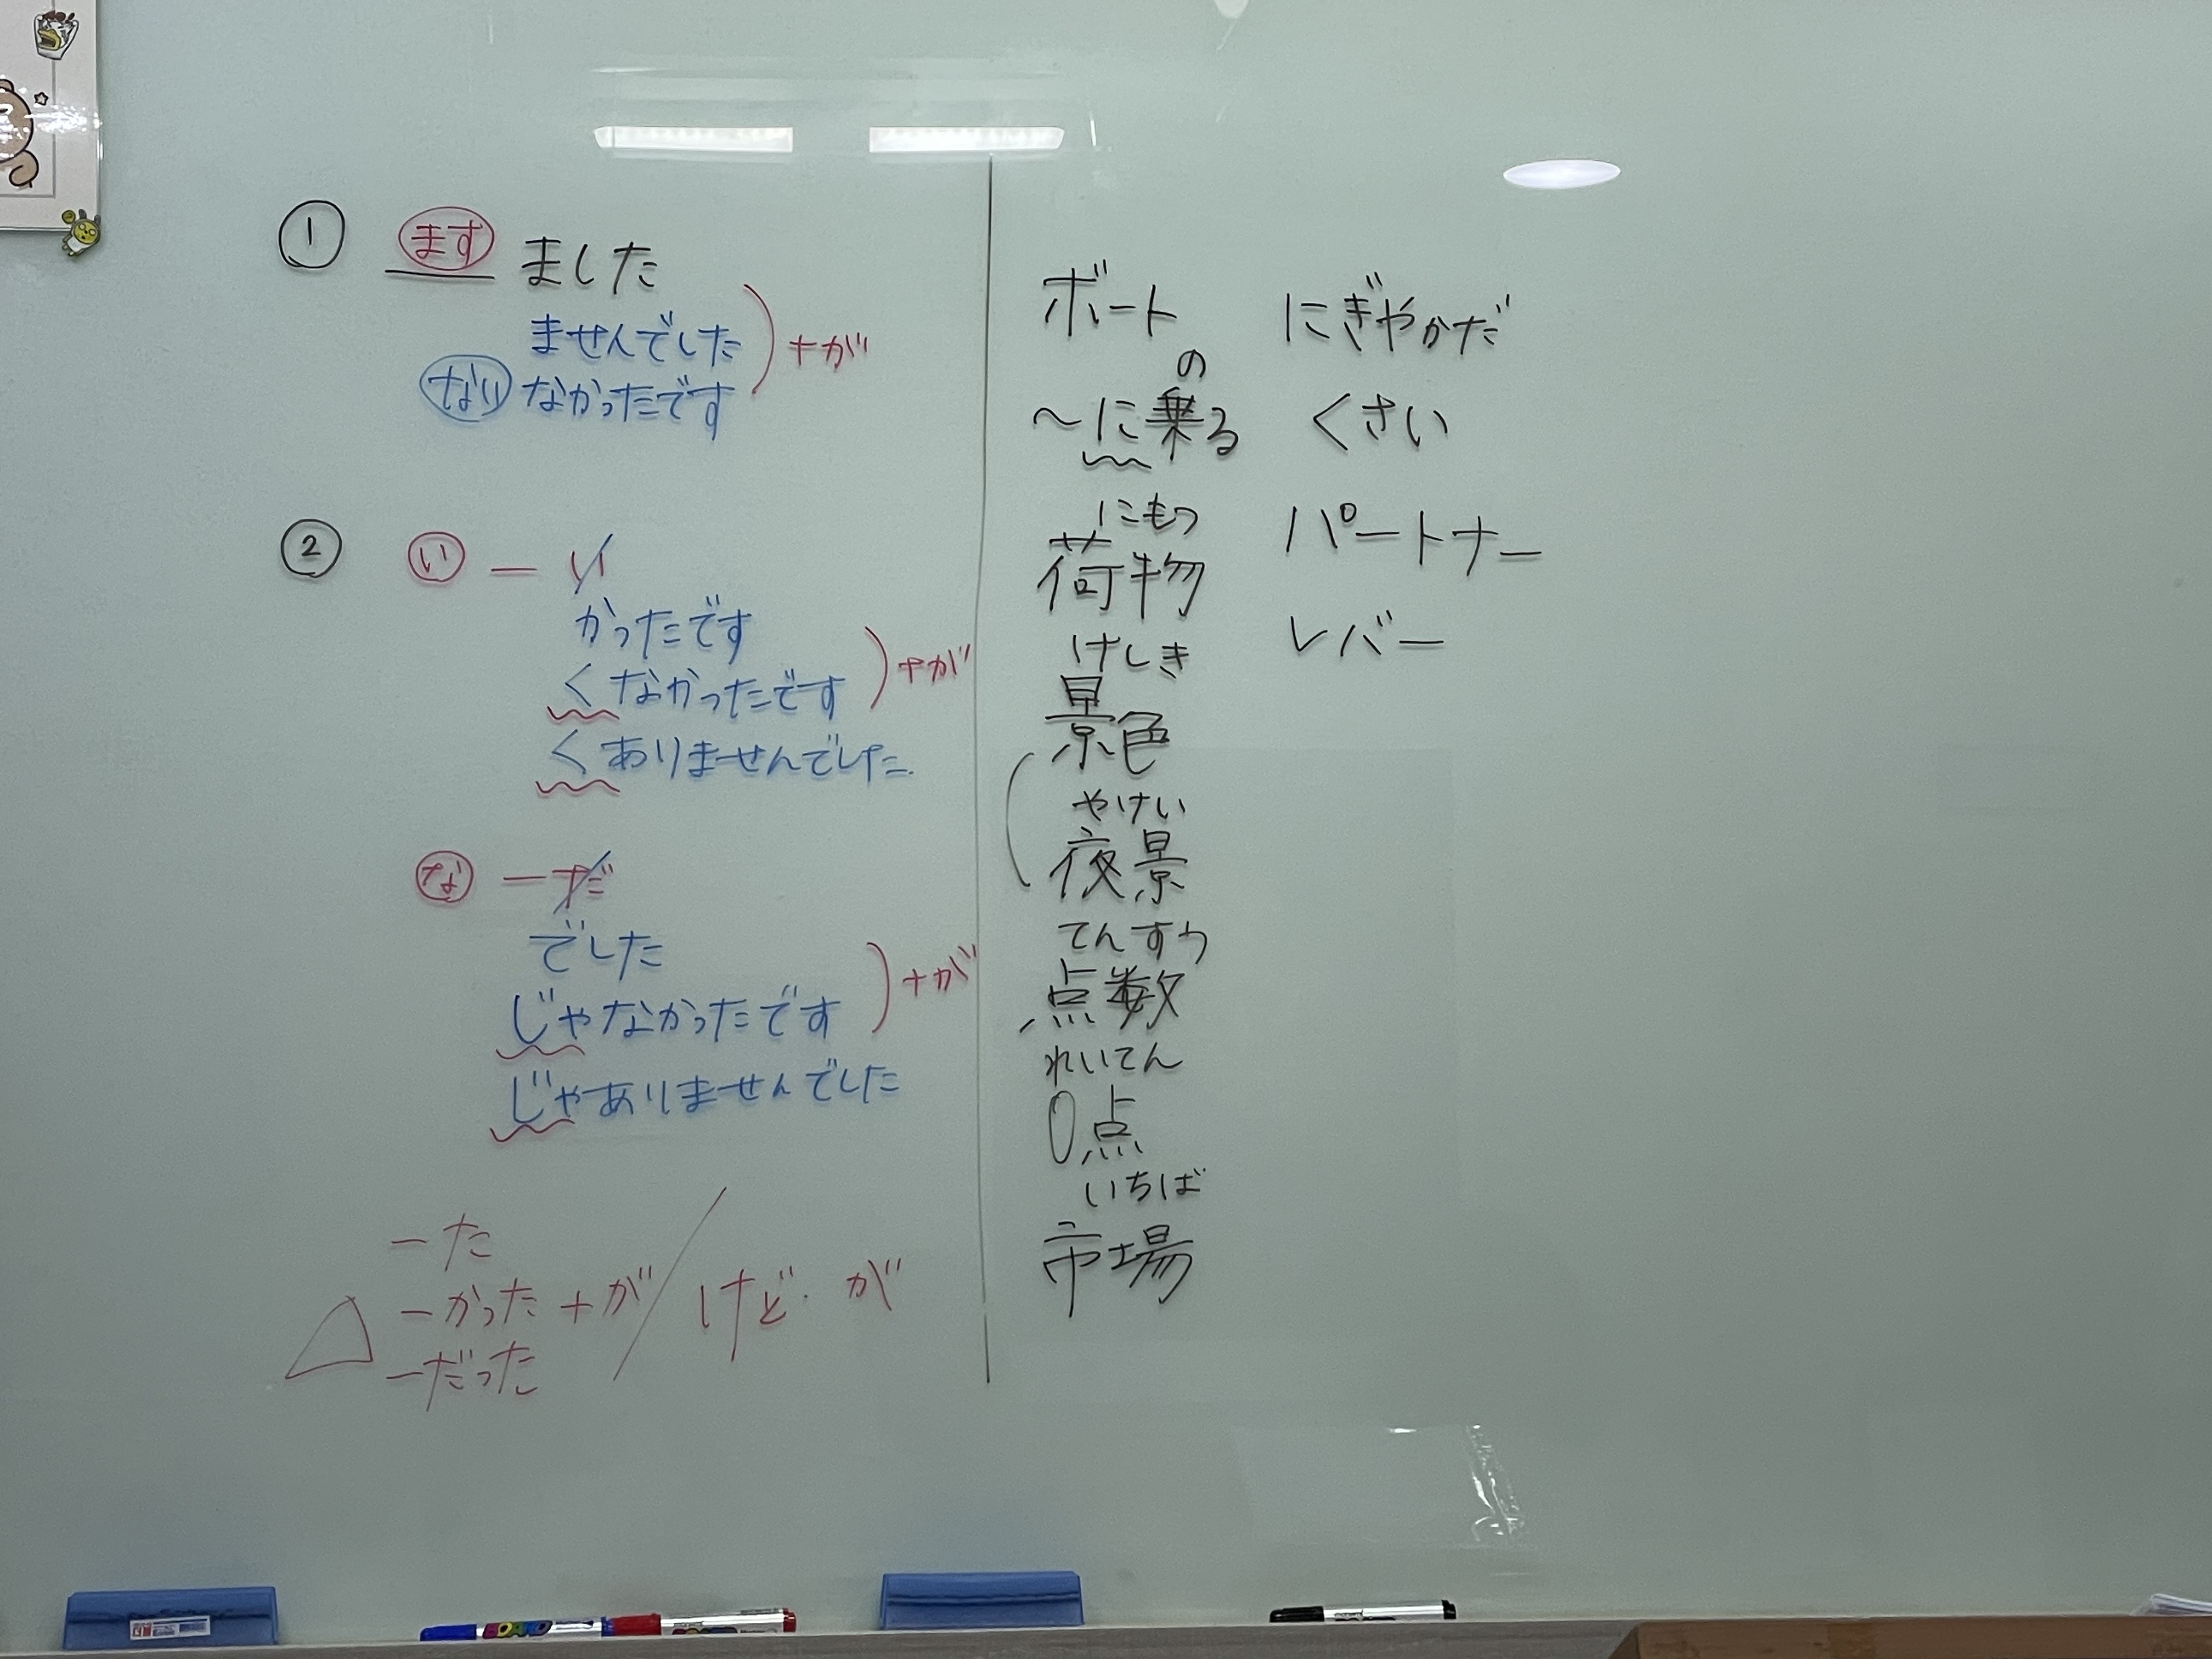 ① ます ました
ませんでした
ない なかったです
)+が
② い ー い
かったです
くなかったです
)+が
くありませんでした.
な ーだ
でした
じゃなかったです
)+が
じゃありませんでした
ーた
△ ーかった +が / けど. が
ーだった
ボート
の
～に乗る
にもつ
荷物
けしき
景色
やけい
夜景
てんすう
点数
れいてん
0点
いちば
市場
にぎやかだ
くさい
パートナー
レバー